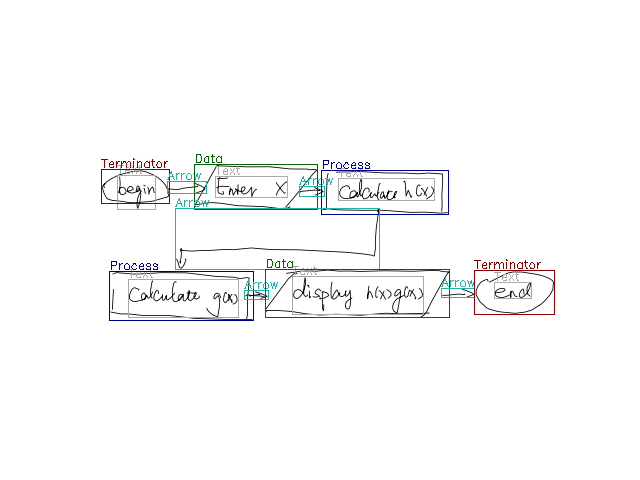 Terminator
Text
begin
Arrow
Data
Text
Enter X
Arrow
Process
Text
Calculate h(x)
Arrow
Process
Text
Calculate g(x)
Arrow
Data
Text
display h(x)g(x)
Arrow
Terminator
Text
end